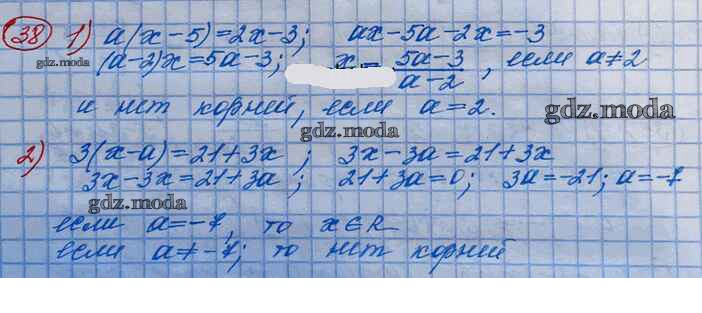 38 1) a(x-5)=2x-3; ax-5a-2x=-3
gdz.moda (a-2)x=5a-3; x= 5a-3/a-2, если a≠2
и нет корней, если a=2. gdz.moda
gdz.moda
2) 3(x-a)=21+3x; 3x-3a=21+3x
3x-3x=21+3a; 21+3a=0; 3a=-21; a=-7
gdz.moda
если a=-7, то x∈R
если a≠-7; то нет корней